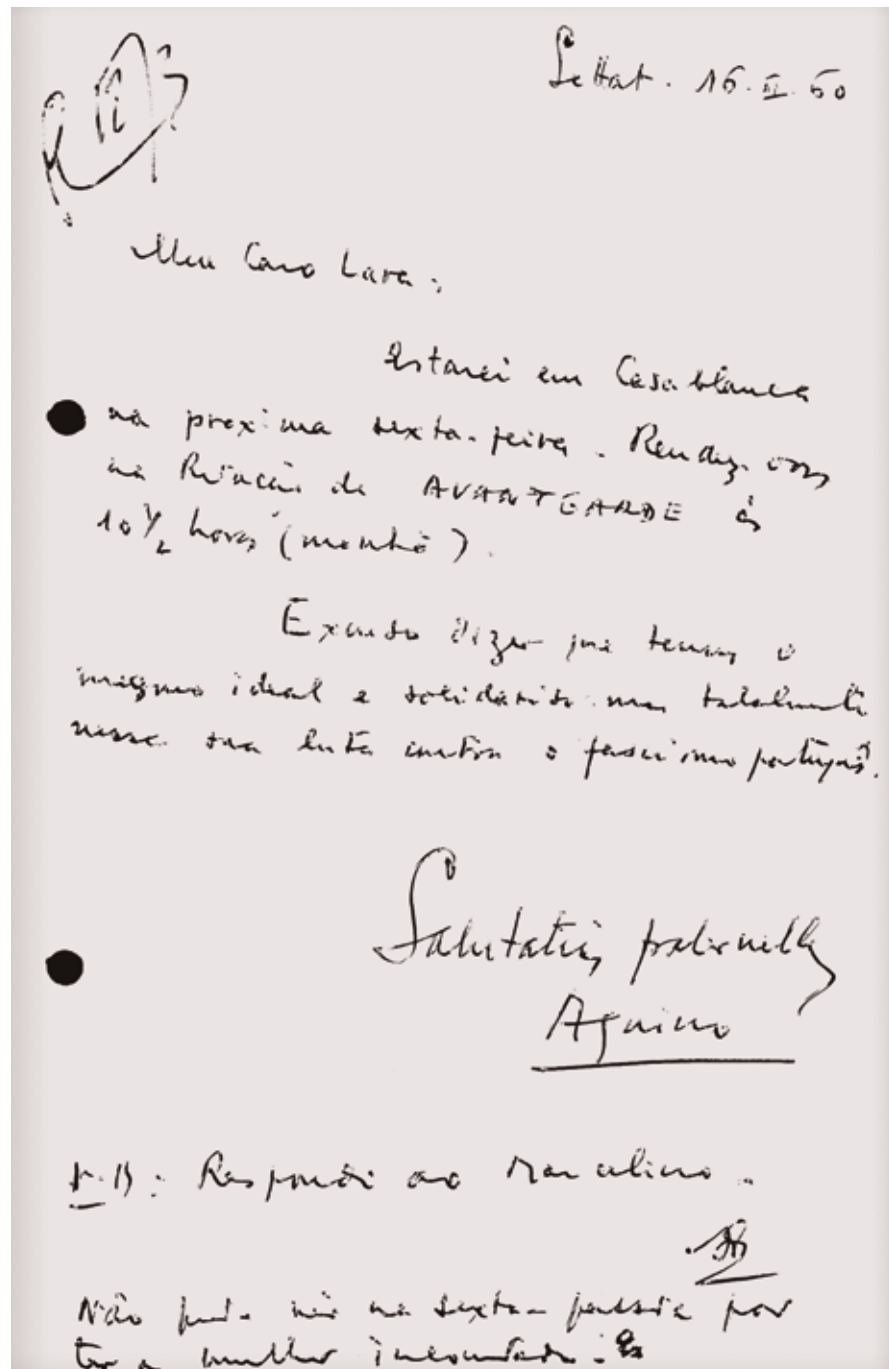 Settat. 16.II.60
Meu Caro Lara:
Estarei em Casablanca
na proxima sexta-feira. Rendez-vous
na Rédacção de AVANTGARDE às
10 1/2 horas (manhã).
Excuso dizer que temos o
mesmo ideal e solidarizo-me totalmente
nessa sua luta contra o fascismo português.
Salutations fraternelles
Aquino
N.B: Respondi ao Marcelino.
Não pude vir na sexta passada por
ter a mulher incomodada.